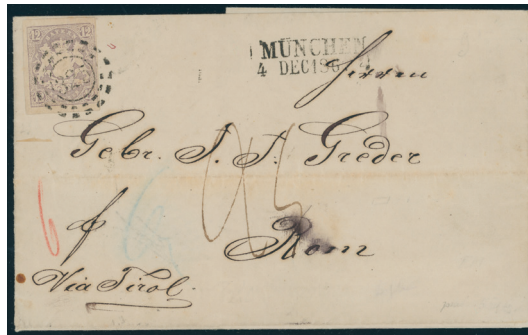 12 12
MÜNCHEN
4 DEC 186
Herren
Gebr. J. J. Greder
p
Rom
Via Tirol.
6